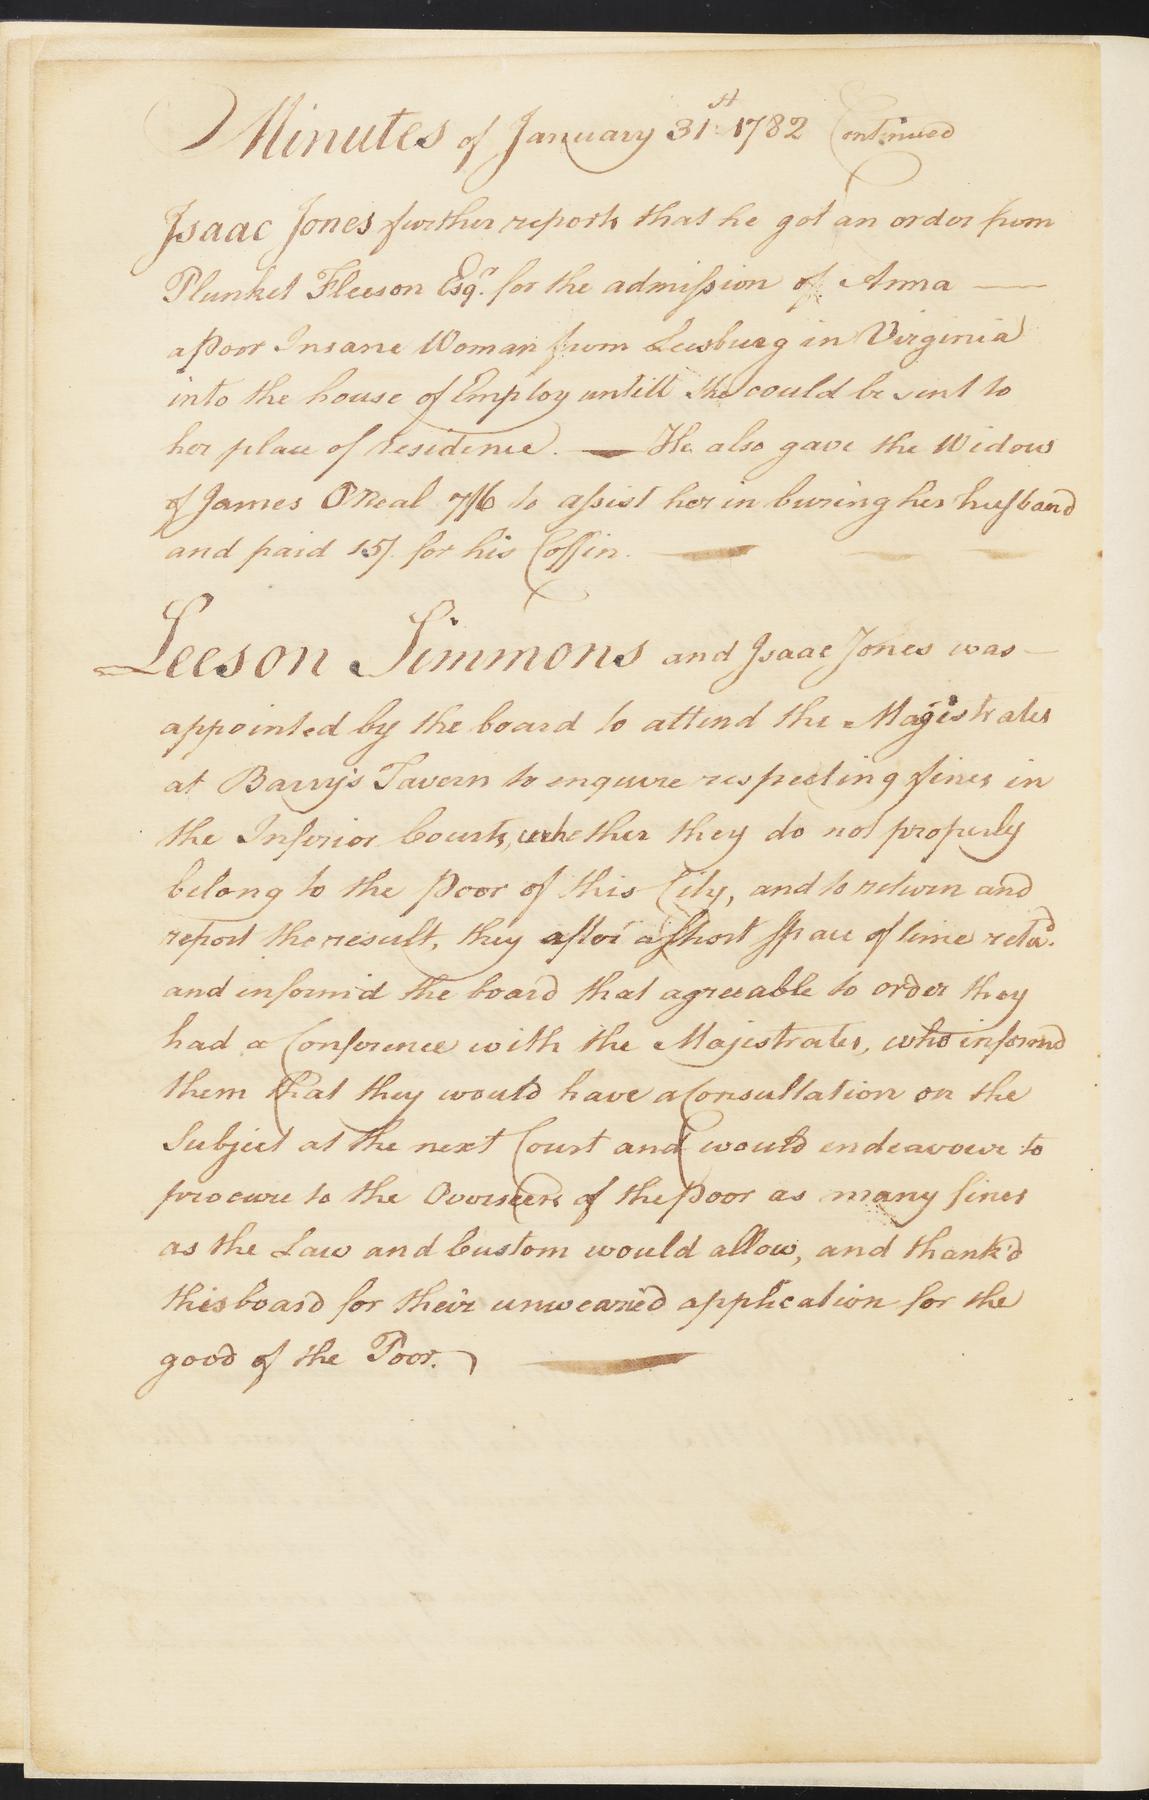 Minutes of January 31st 1782 Continued
Isaac Jones further reports that he got an order from
Plunket Fleeson Esqr. for the admission of Anna —
a Poor Insane Woman from Leesburg in Virginia
into the house of Employ untill she could be sent to
her place of residence. — He also gave the Widow
of James O'Neal 7/6 to assist her in buring her husband
and paid 15/. for his Coffin. —
Leeson Simmons and Isaac Jones was —
appointed by the board to attend the Magistrates
at Barry's Tavern to enquire respecting fines in
the Inferior Courts, whether they do not properly
belong to the Poor of this City, and to return and
report the result, they after a short space of time retd.
and inform'd the board that agreeable to order they
had a Conference with the Majestrates, who informd
them that they would have a Consultation on the
Subject at the next Court and would endeavour to
procure to the Overseers of the Poor as many fines
as the Law and Custom would allow, and thank'd
this board for their unwearied application for the
good of the Poor. —